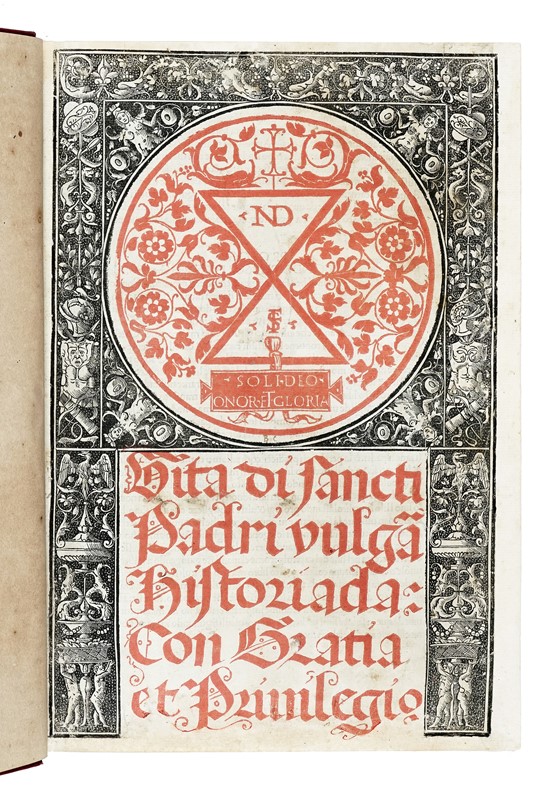 ND
·SOLI·DEO·
ONOR·ET·GLORIA
Vita di sancti
Padri vulgã
Historiada:
Con Gratia
et Priuilegio